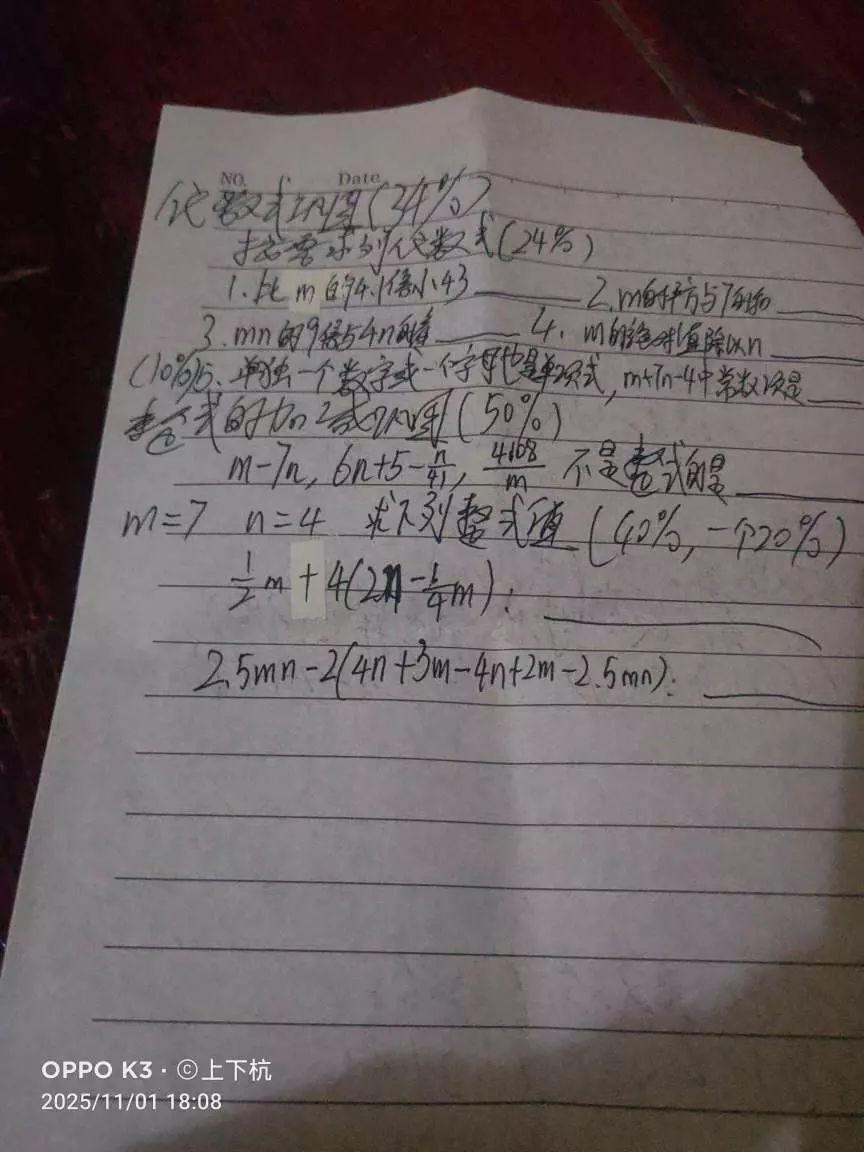 NO. Date
代数式 (34%)
按要求列代数式(24%)
1.比m的4.1倍小43____ 2.m的平方与7的和____
3.mn的9倍与4n的差____ 4.m的绝对值除以n____
(10%)5.单独一个数字或一个字母也是单项式,m+7n-4中常数项是____
整式的加减 (50%)
m-7n, 6n+5-n/41, /m 不是整式的是____
m=7 n=4 求下列整式值(40%,一个20%)
1/2m+4(2n-1/4m):____
2.5mn-2(4n+3m-4n+2m-2.5mn):____
OPPO K3·©上下杭
2025/11/01 18:08